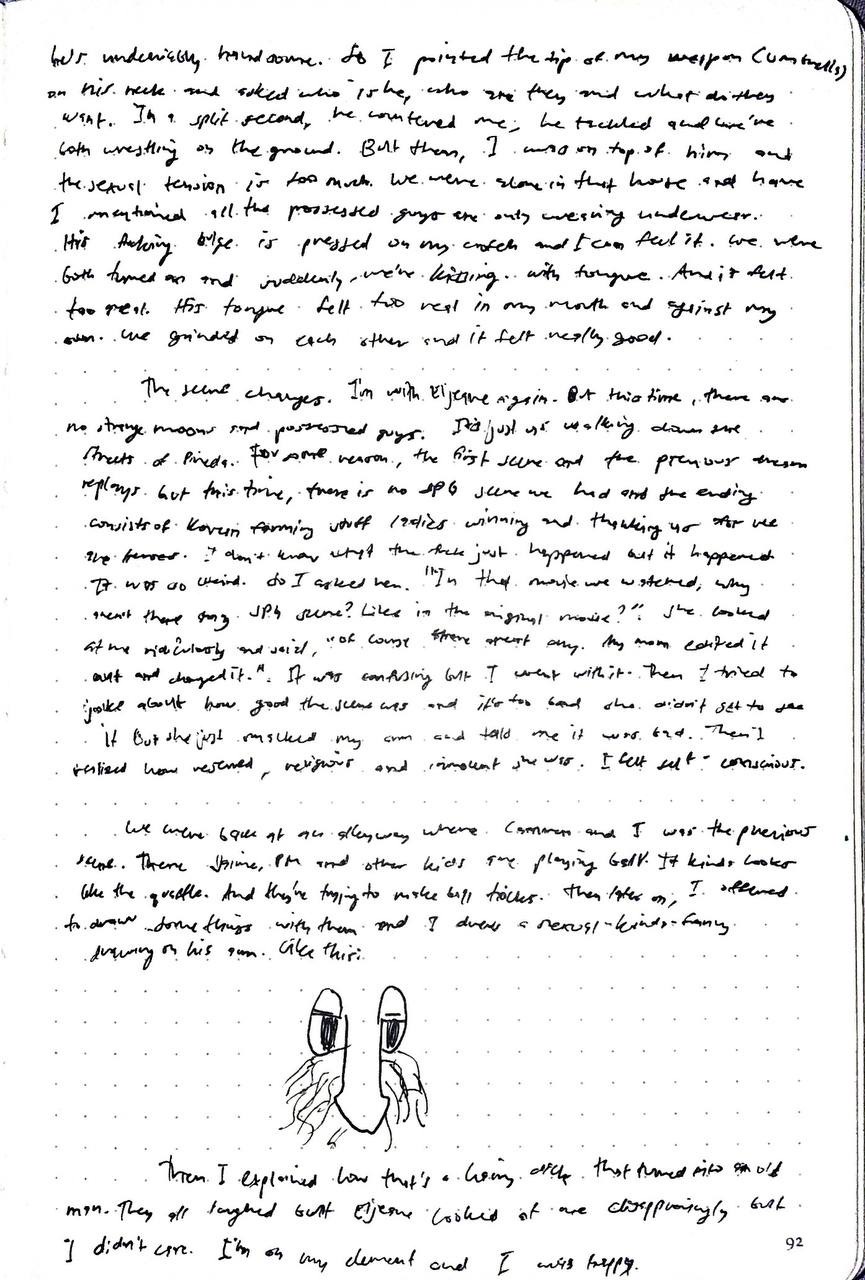 he's undeniably handsome. So I pointed the tip of my weapon (umbrella)
on his neck and asked who is he, who are they and what do they
want. In a split second, he countered me, he tackled and we've
both wrestling on the ground. But then, I was on top of him and
the sexual tension is too much. We were alone in that house and have
I mentioned all the possessed guys are only wearing underwear.
His fucking bulge is pressed on my crotch and I can feel it. We were
both turned on and suddenly, we're kissing. with tongue. And it felt
too real. His tongue felt too real in my mouth and against my
own. We grinded on each other and it felt really good.
The scene changes. I'm with Eljeane again. But this time, there are
no strange moons and possessed guys. It's just us walking down the
streets of Pineda. For some reason, the first scene and the previous dream
replays but this time, there is no SPG scene we had and the ending
consists of Korean farming stuff ladies winning and thanking us for we
the heroes. I don't know what the fuck just happened but it happened
It was so weird. So I asked her. "In that movie we watched, why
aren't there any SPG scene? Like in the original movie?". She looked
at me ridiculously and said, "of course there aren't any. My mom edited it
out and changed it.". It was confusing but I went with it. Then I tried to
joke about how good the scene was and it's too bad she didn't get to see
it But she just smacked my arm and told me it was bad. Then I
realized how reserved, religious and innocent she was. I felt self-conscious.
We were back at an alleyway where Carmen and I was the previous
scene. There and other kids are playing ball. It kinda looks
like the quaffle. And they're trying to make ball tricks. Then later on, I offered
to draw some things with them and I drew a sexual-kinda-funny
drawing on his arm. Like this:
Then I explained how that's a dick that turned into an old
man. They all laughed but Eljeane looked at me disapprovingly but
I didn't care. I'm on my element and I was happy.
92